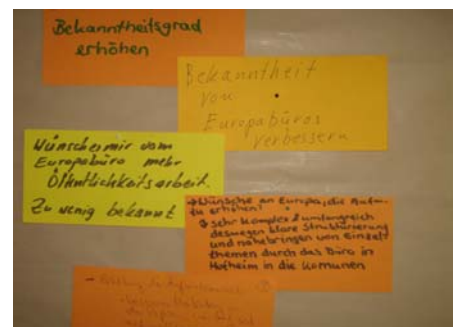 Bekanntheitsgrad
erhöhen
Bekanntheit
vom
Europabüros
verbessern
Wünsche mir vom
Europabüro mehr
Öffentlichkeitsarbeit.
Zu wenig bekannt
→ Wünsche an Europa, die Aufm.
zu erhöhen!
sehr komplex & umfangreich
deswegen klare Strukturierung
und nahebringen von Einzel-
themen durch das Büro in
Hofheim in die Komunen